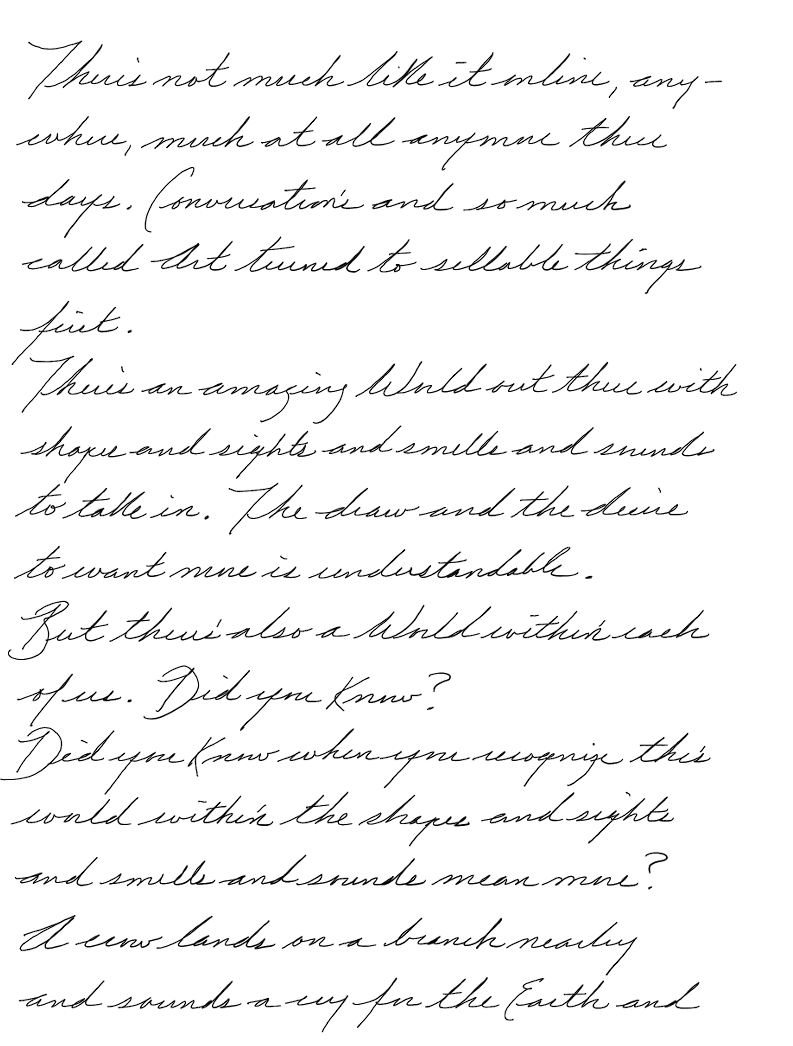 There's not much like it online, any-
where, much at all anymore these
days. Conversations and so much
called Art turned to sellable things
first.
There's an amazing World out there with
shapes and sights and smells and sounds
to take in. The draw and the desire
to want more is understandable.
But there's also a World within each
of us. Did you Know?
Did you Know when you recognize this
world within the shapes and sights
and smells and sounds mean more?
A crow lands on a branch nearby
and sounds a cry for the Earth and